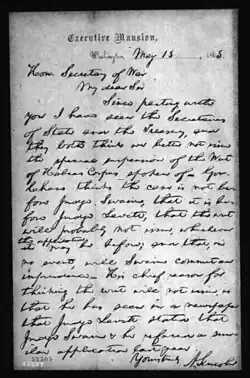 Executive Mansion,
Washington, May 13, 1863.
Hon. Secretary of War
My dear Sir
Since parting with
you I have seen the Secretaries
of State and the Treasury, and
they both think we better not issue
the special suspension of the Writ
of Habeas Corpus spoken of. Gov.
Chase thinks the case is not be-
fore Judge Swaine, that it is be-
fore Judge Leavitt, that the writ
will probably not issue, whichever
the application may be before; and that, in
no event will Swaine commit an
imprudence. His chief reason for
thinking the writ will not issue, is
that he has seen in a newspaper
that Judge Leavitt stated that
Judge Swaine & he refused a sim-
ilar application last year.
Yours truly
A. Lincoln